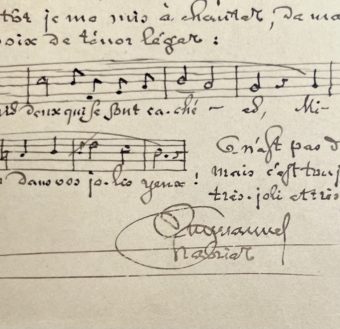 je me mis à chanter, de ma
voix de ténor léger :
deux qui se sont ca-ché - es, Mi-
dans vos jo-lis yeux !
C'n'est pas d
mais c'est touj
très-joli et très
Emmanuel
Chabrier